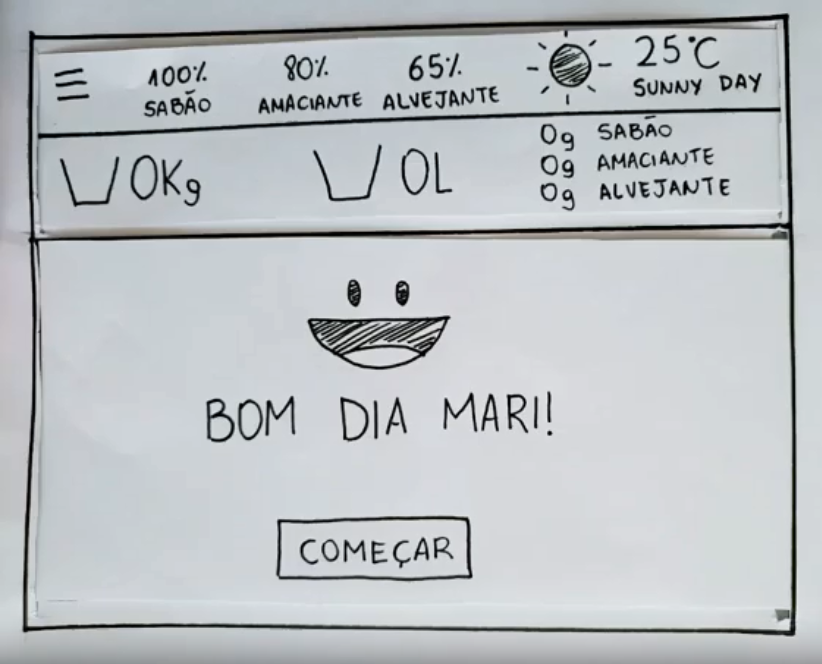 100% 80% 65% 25°C
SABÃO AMACIANTE ALVEJANTE SUNNY DAY
0Kg 0L
0g SABÃO
0g AMACIANTE
0g ALVEJANTE
BOM DIA MARI!
COMEÇAR